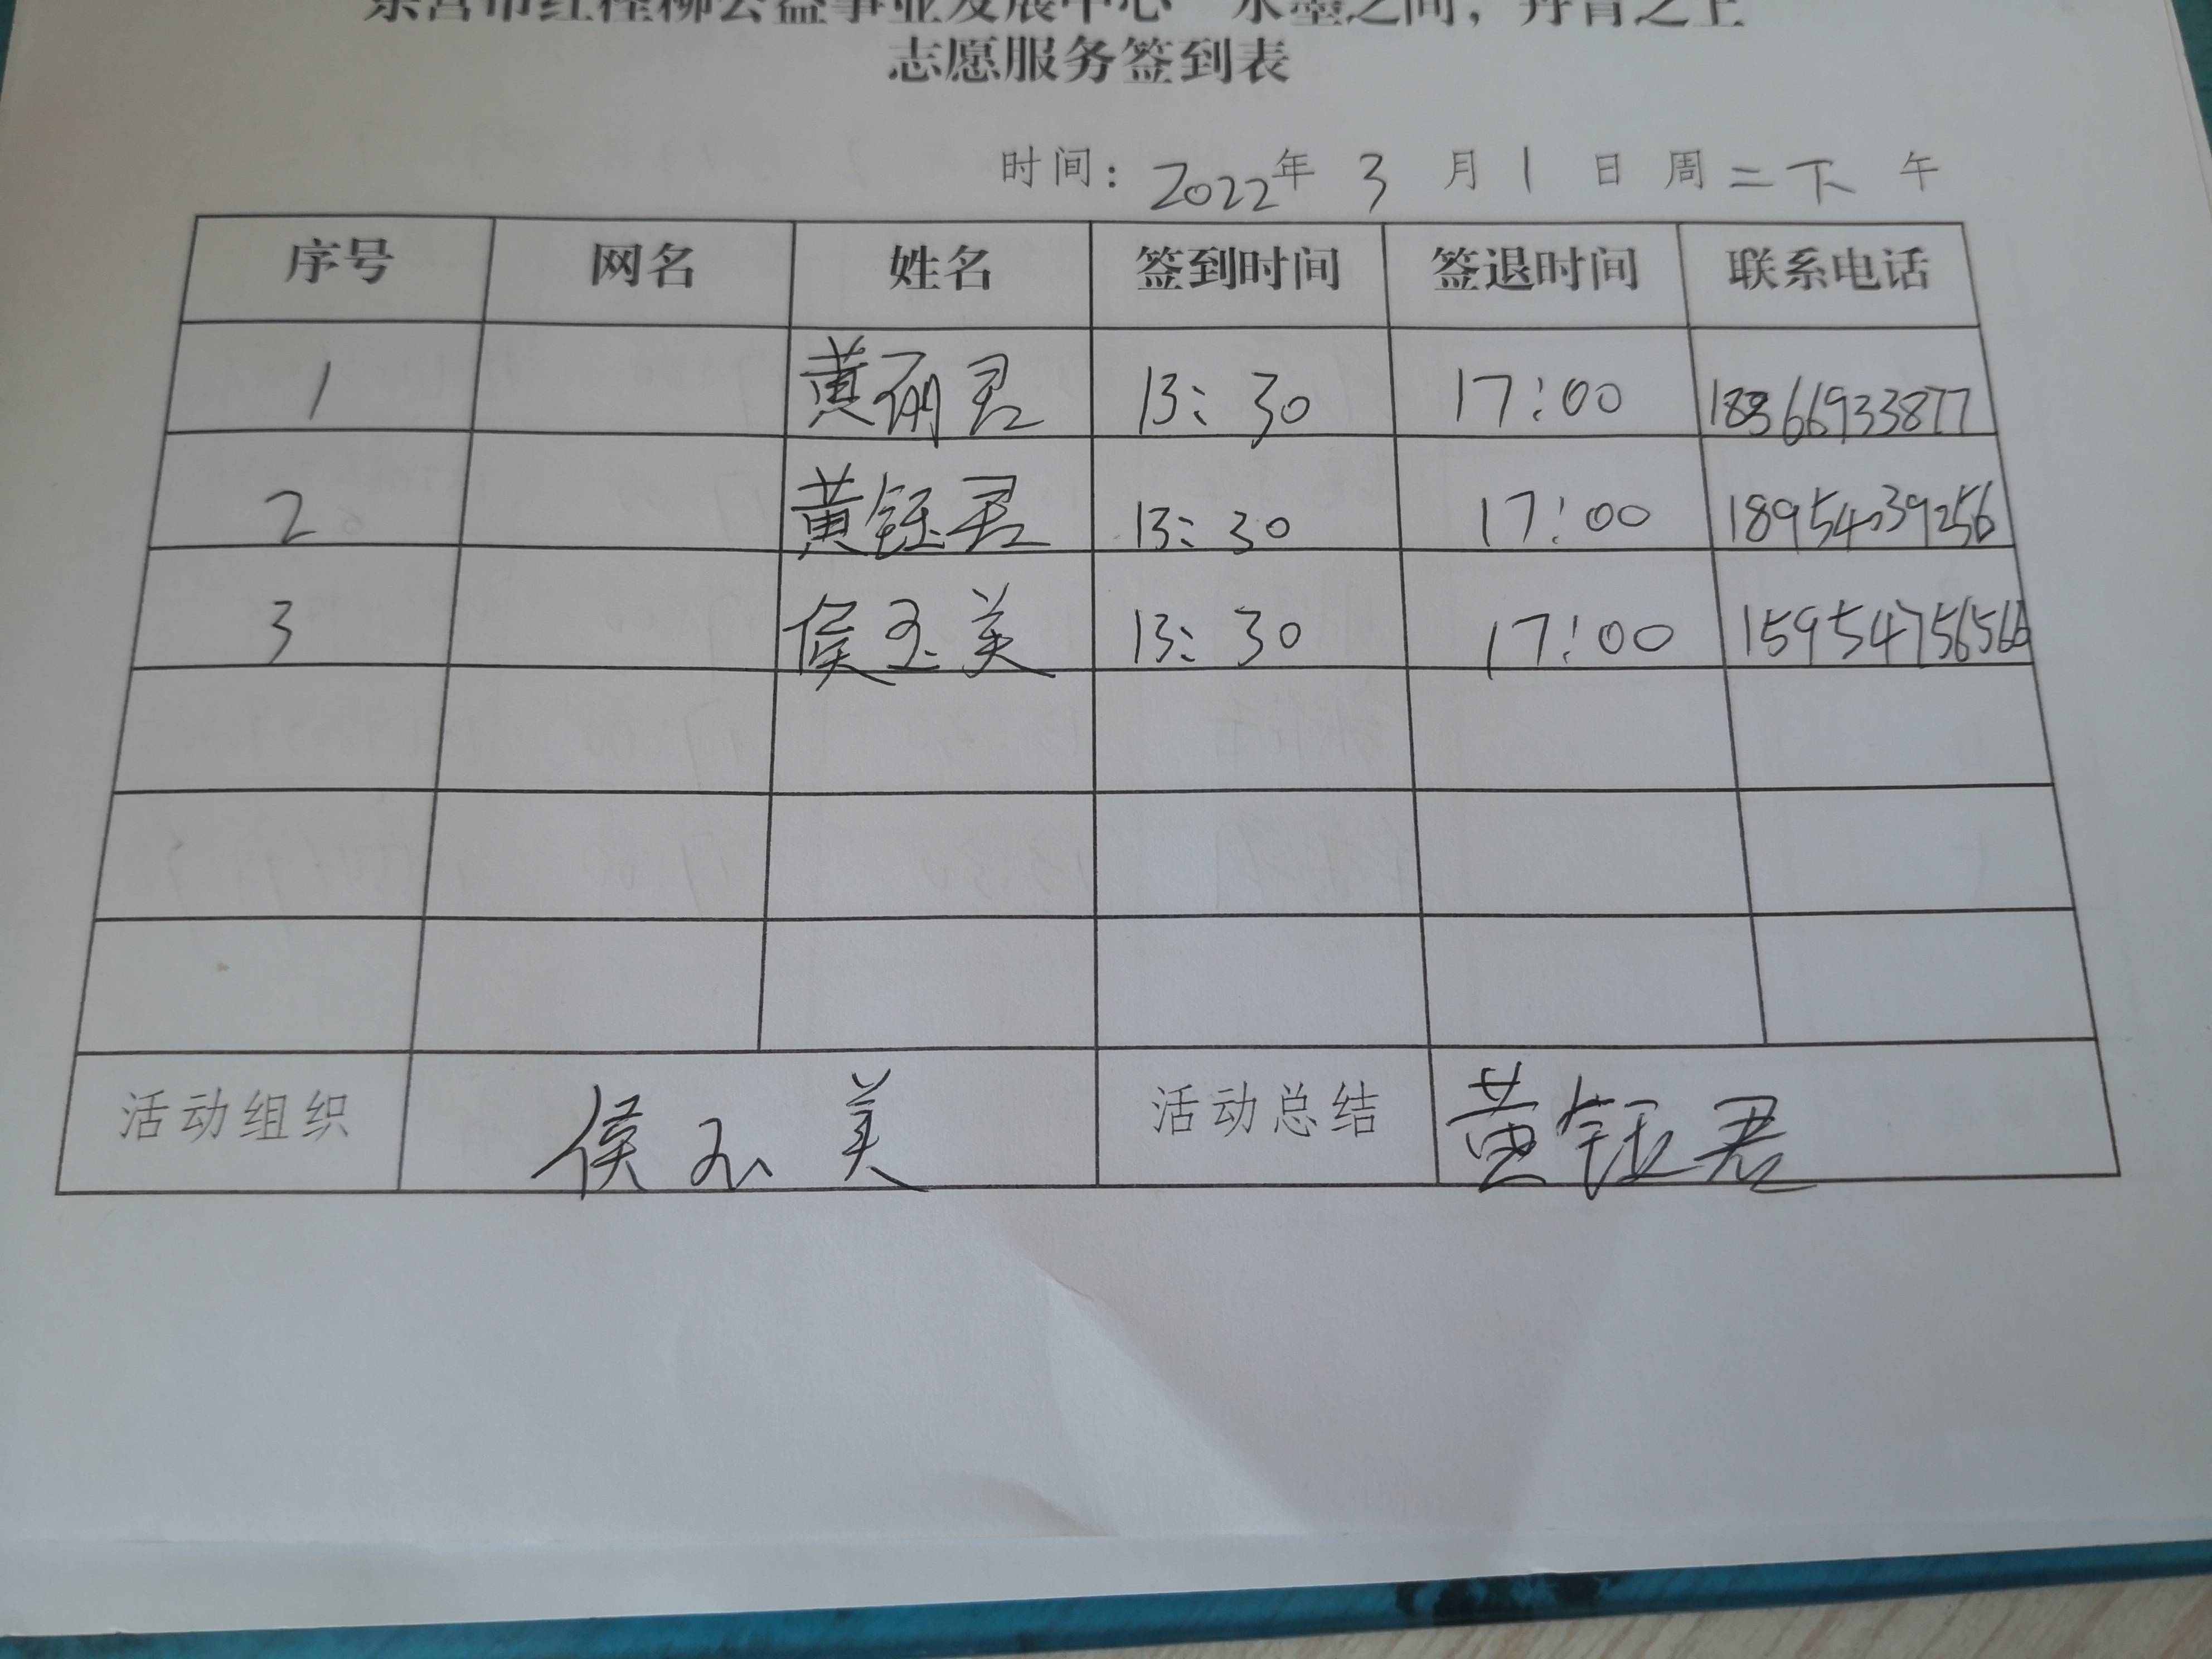 东营市红柽柳公益事业发展中心“水墨之间，丹青之上”
志愿服务签到表
时间：2022年 3 月 1 日 周二下 午
序号 网名 姓名 签到时间 签退时间 联系电话
1 黄丽君 13:30 17:00 18366933877
2 黄钰君 13:30 17:00 18954039256
3 侯玉美 13:30 17:00
活动组织 侯玉美 活动总结 黄钰君